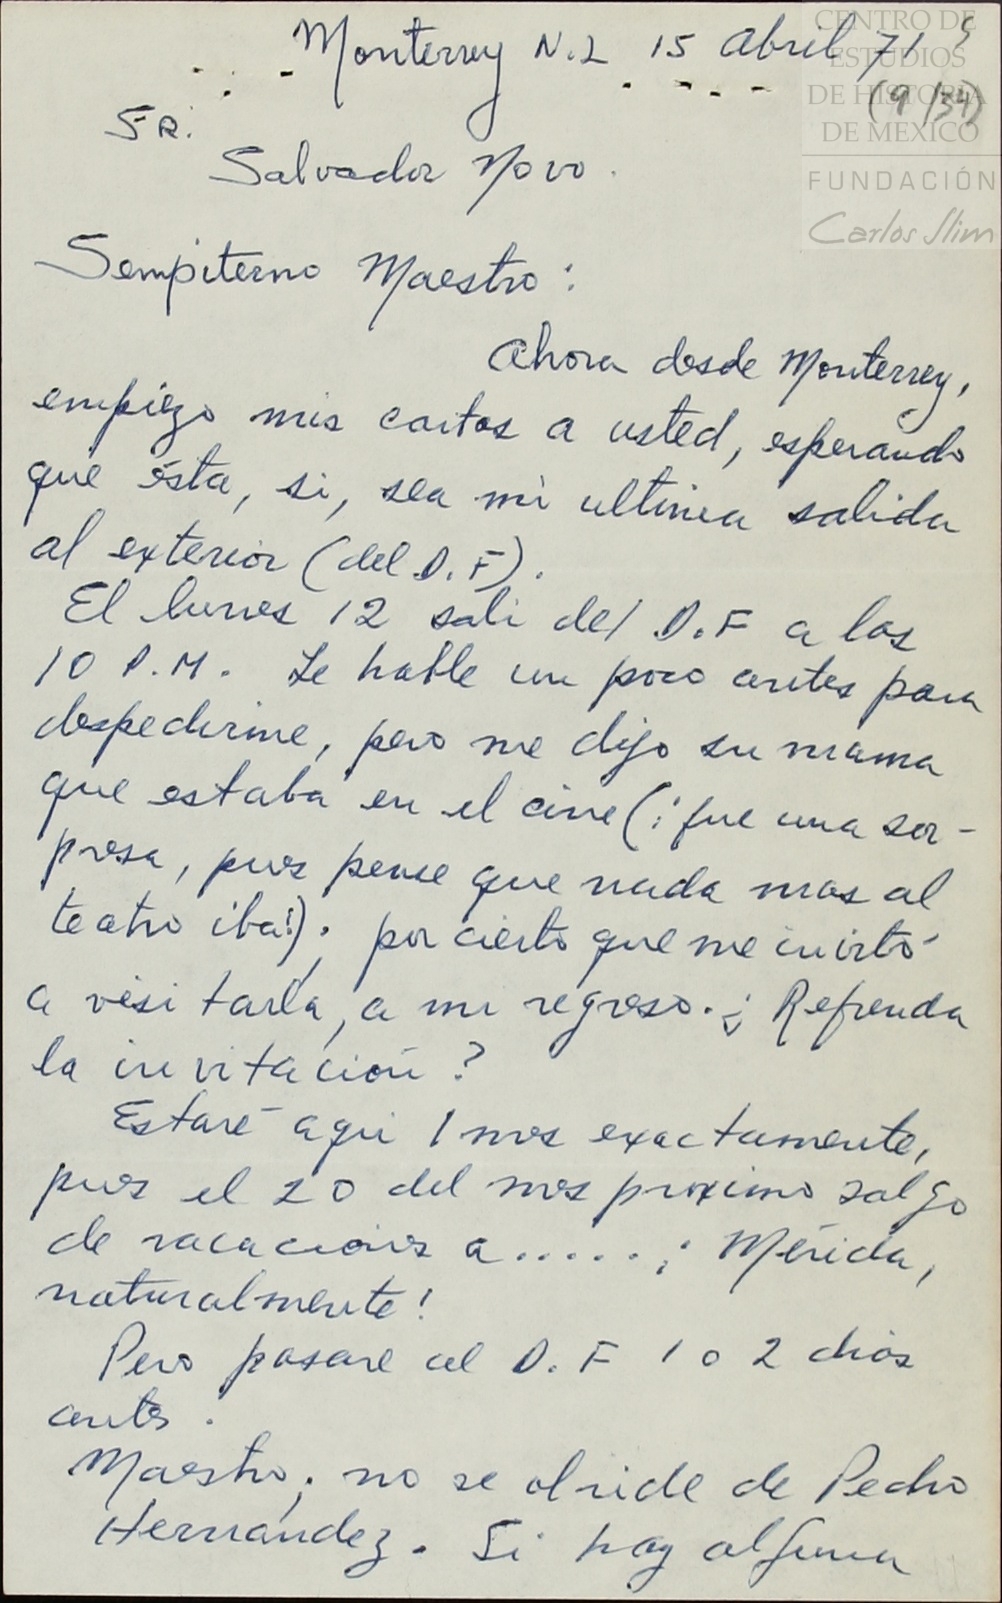 Monterrey N.L 15 Abril 71
(9/34)
CENTRO DE
ESTUDIOS
DE HISTORIA
DE MEXICO
FUNDACIÓN
Carlos Slim
SR.
Salvador Novo.
Sempiterno Maestro:
Ahora desde Monterrey,
empiezo mis cartas a usted, esperando
que ésta, si, sea mi ultima salida
al exterior (del D.F).
El lunes 12 sali del D.F a las
10 P.M. Le hable un poco antes para
despedirme, pero me dijo su mama
que estaba en el cine (¡fue una sor-
presa, pues pense que nada mas al
teatro iba!). por cierto que me invitó
a visitarla, a mi regreso. ¿Refrenda
la invitación?
Estaré aqui 1 mes exactamente,
pues el 20 del mes proximo salgo
de vacaciones a.....¡Mérida,
naturalmente!
Pero pasare al D.F 1 o 2 dias
antes.
Maestro, no se olvide de Pedro
Hernández. Si hay alguna